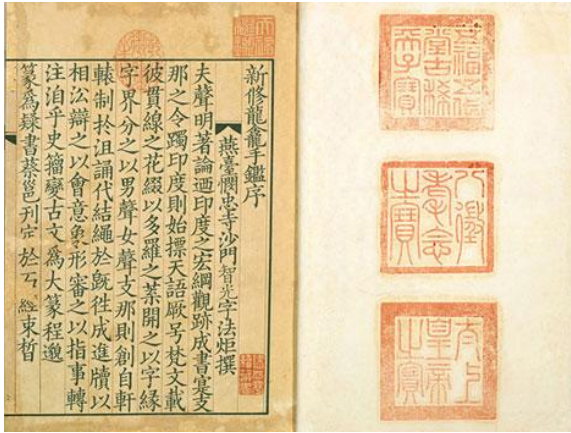 新修龍龕手鑑序
燕臺憫忠寺沙門智光字法炬撰
夫聲明著論迺印度之宏綱觀跡成書寔支
那之令躅印度則始摽天語厥号梵文載
彼貫線之花綴以多羅之葉開之以字緣
字界分之以男聲女聲支那則創自軒
轅制於沮誦代結繩於既徃成進牘以
相沿辯之以會意象形審之以指事轉
注洎乎史籀變古文為大篆程邈
篆為隸書蔡邕刊定於石經束晳
五福五代堂古稀天子寶
八徵耄念之寶
太上皇帝之寶